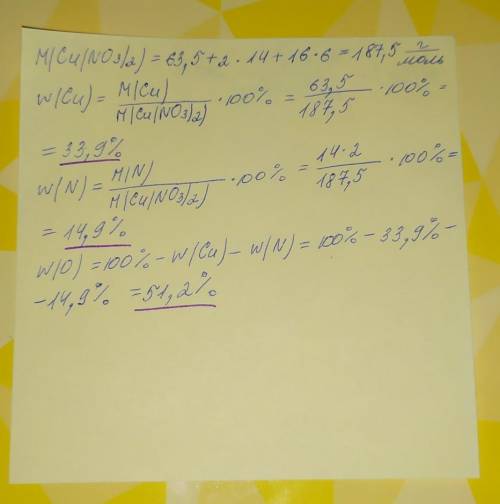 M(Cu(NO3)2) = 63,5 + 2 · 14 + 16 · 6 = 187,5 г/моль
W(Cu) = M(Cu)/M(Cu(NO3)2) · 100% = 63,5/187,5 · 100% =
= 33,9%
W(N) = M(N)/M(Cu(NO3)2) · 100% = 14·2/187,5 · 100% =
= 14,9%
W(O) = 100% - W(Cu) - W(N) = 100% - 33,9% -
- 14,9% = 51,2%